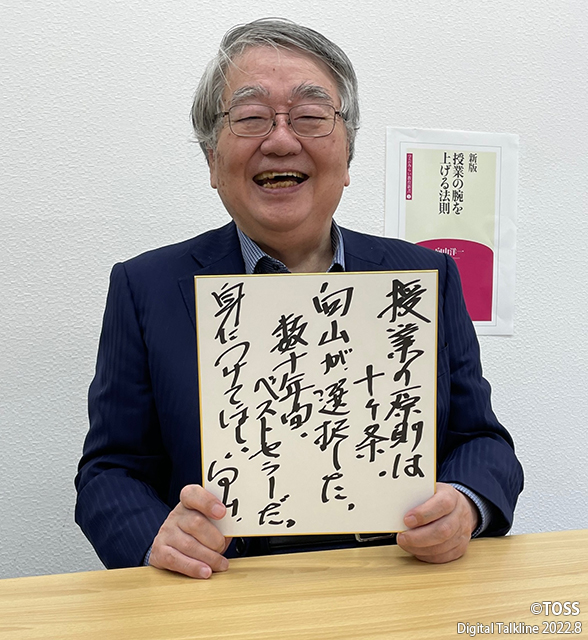 授業の原則は
十ヶ条.
向山が選択した。
数十年間、
ベストセラーだ。
身につけてほしい、向山
新版
授業の腕を
上げる法則
向山洋一
©TOSS
Digital Talkline 2022.8